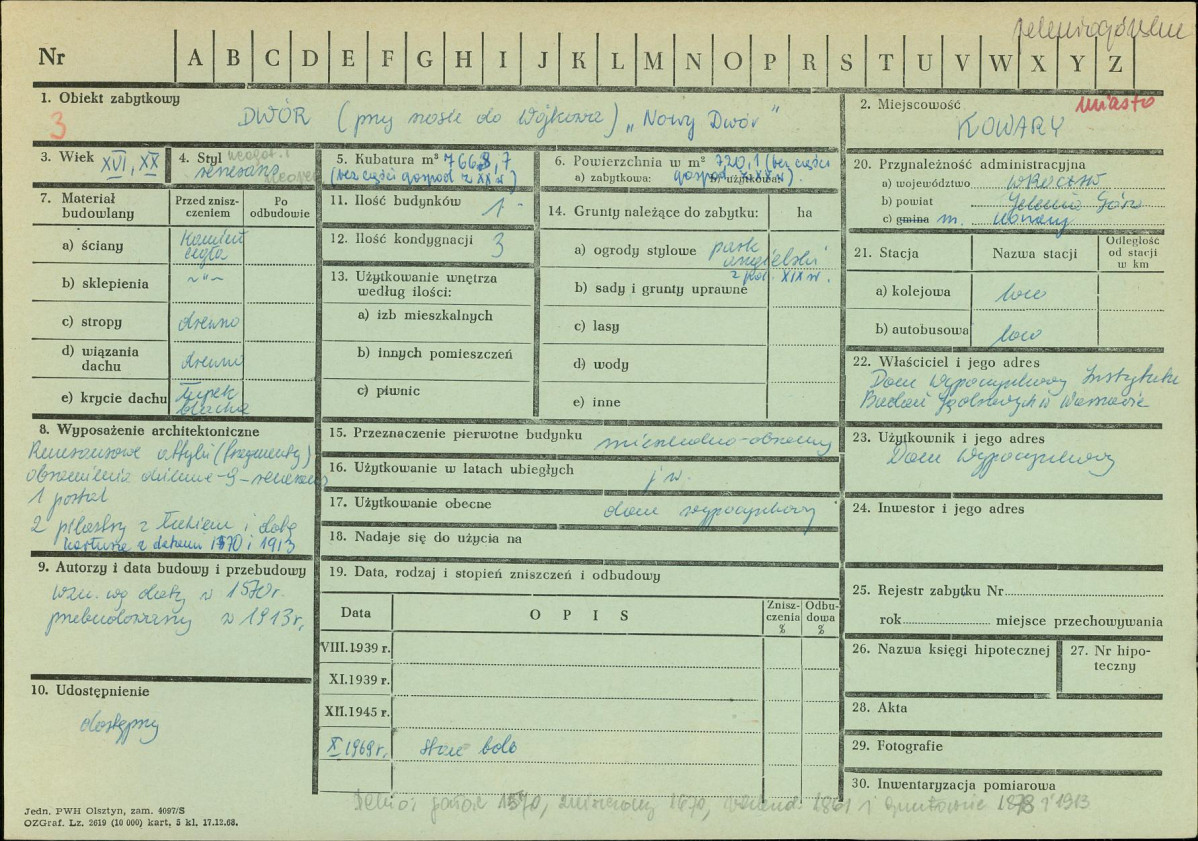 jeleniogórskie
Nr A B C D E F G H I J K L M N O P R S T U V W X Y Z
1. Obiekt zabytkowy
3
DWÓR (przy szosie do Wojkowa) „Nowy Dwór"
2. Miejscowość
miasto
KOWARY
3. Wiek XVI, XX
4. Styl neogot. i
renesans
5. Kubatura m³ 7668,7
(bez części gospod z XX w)
6. Powierzchnia w m² 720,1 (bez części
a) zabytkowa: b) użytkowa:
gospod. z XX w).
7. Materiał budowlany
Przed zniszczeniem
Po odbudowie
a) ściany kamień
cegła
b) sklepienia ~"~
c) stropy drewno
d) wiązania dachu drewno
e) krycie dachu łupek
blacha
8. Wyposażenie architektoniczne
Renesansowe attyki (fragmenty)
obramienia okienne - 9 - renesans
1 portal
2 pilastry z łukiem i datą
kartusze z datami 1570 i 1913
9. Autorzy i data budowy i przebudowy
wzn. wg daty w 1570 r.
przebudowany w 1913 r.
10. Udostępnienie
dostępny
11. Ilość budynków 1 -
12. Ilość kondygnacji 3
13. Użytkowanie wnętrza według ilości:
a) izb mieszkalnych
b) innych pomieszczeń
c) piwnic
14. Grunty należące do zabytku: ha
a) ogrody stylowe park
angielski
z poł. XIX w.
b) sady i grunty uprawne
c) lasy
d) wody
e) inne
15. Przeznaczenie pierwotne budynku mieszkalno-obronny
16. Użytkowanie w latach ubiegłych j w.
17. Użytkowanie obecne dom wypoczynkowy
18. Nadaje się do użycia na
19. Data, rodzaj i stopień zniszczeń i odbudowy
Data O P I S Zniszczenia % Odbudowa %
VIII.1939 r.
XI.1939 r.
XII.1945 r.
X 1969 r. stan dob
20. Przynależność administracyjna
a) województwo Wrocław
b) powiat Jelenia Góra
c) gmina m. Kowary
21. Stacja Nazwa stacji Odległość od stacji w km
a) kolejowa loco
b) autobusowa loco
22. Właściciel i jego adres
Dom Wypoczynkowy Instytutu
Badań Jądrowych w Warszawie
23. Użytkownik i jego adres
Dom Wypoczynkowy
24. Inwestor i jego adres
25. Rejestr zabytku Nr
rok miejsce przechowywania
26. Nazwa księgi hipotecznej
27. Nr hipoteczny
28. Akta
29. Fotografie
30. Inwentaryzacja pomiarowa
Dehio: pałac 1570, zniszczony 1670, 1861 i gruntownie 1878 i 1913
Jedn. PWH Olsztyn, zam. 4097/S
OZGraf. Lz. 2619 (10 000) kart, 5 kl. 17.12.68.